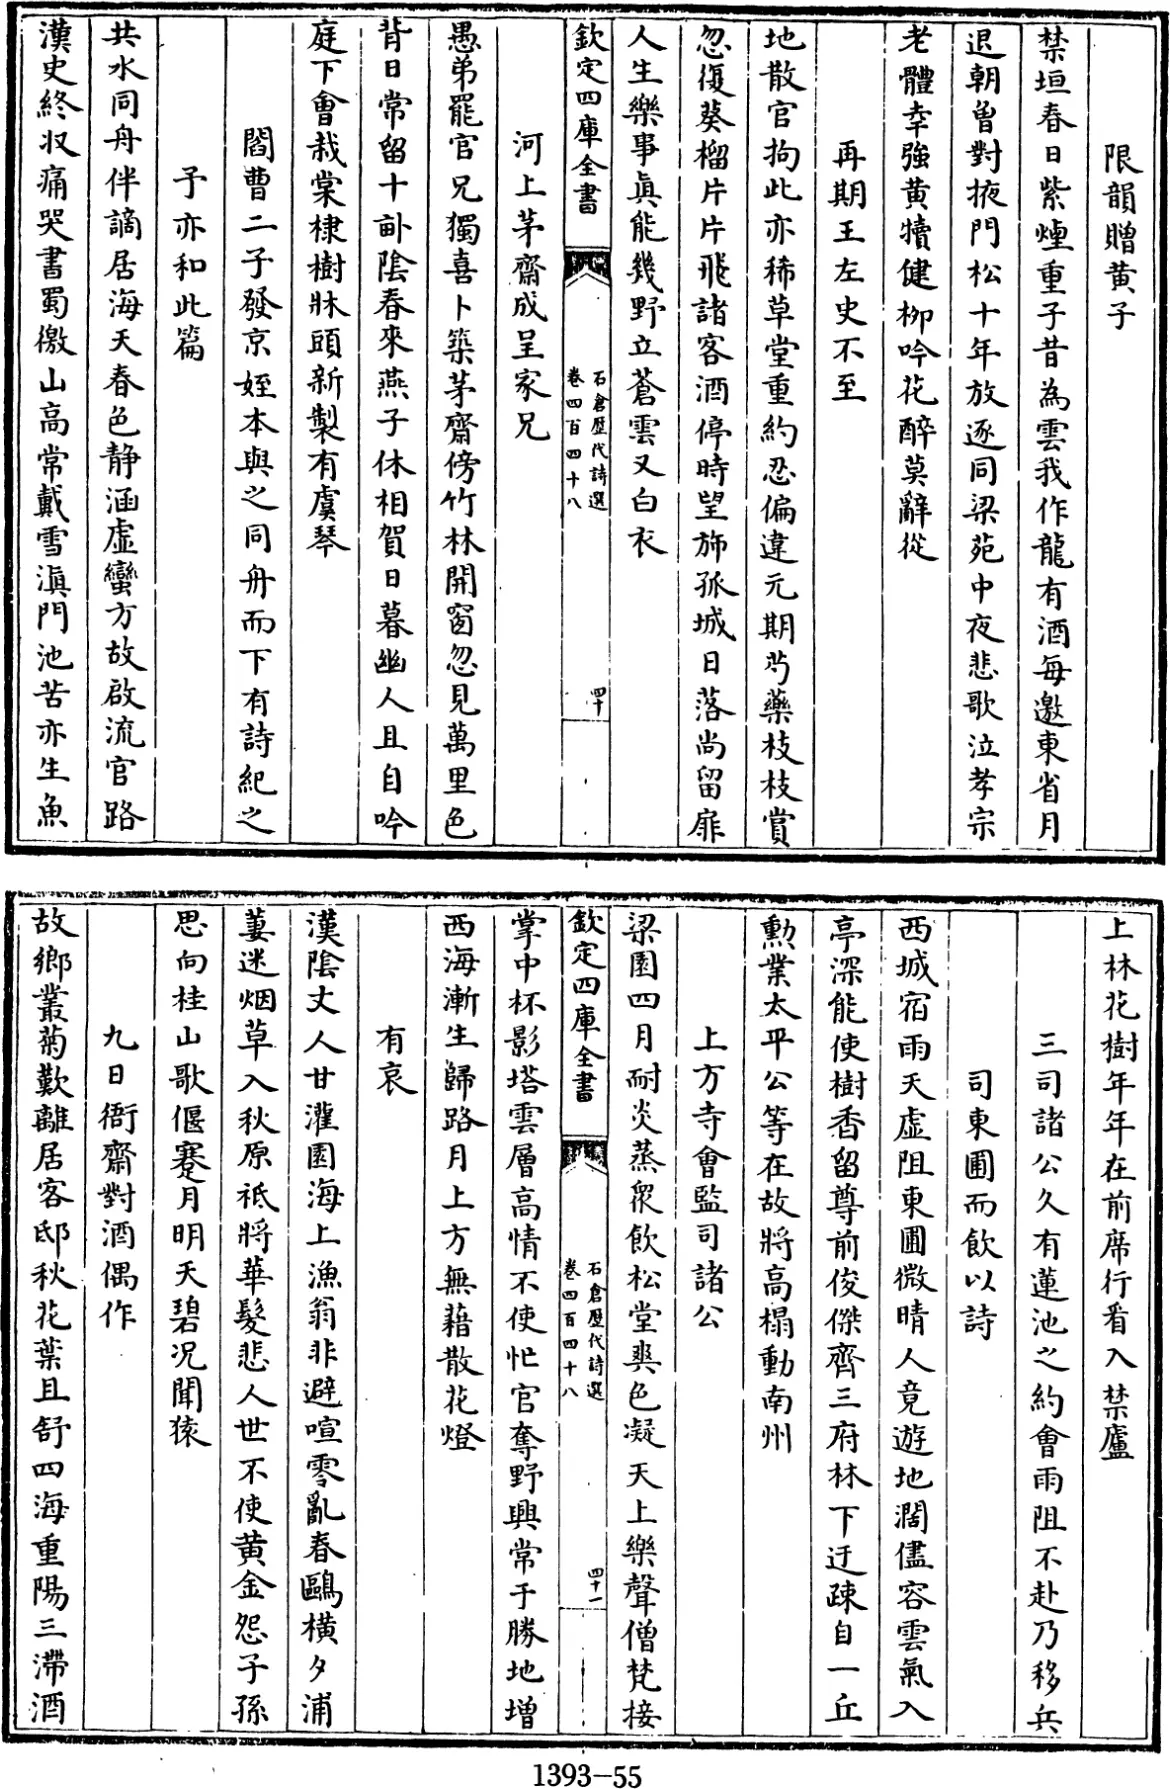 限韻贈黄子
禁垣春日紫煙重子昔為雲我作龍有酒每邀東省月
退朝曽對掖門松十年放逐同梁苑中夜悲歌泣孝宗
老體幸強黄犢健柳吟花醉莫辭從
再期王左史不至
地散官拘此亦稀草堂重約忍偏違元期芍藥枝枝賞
忽復葵榴片片飛諸客酒停時望斾孤城日落尚留扉
人生樂事眞能幾野立蒼雲又白衣
欽定四庫全書
石倉歷代詩選
卷四百四十八
四十
河上茅齋成呈家兄
愚弟罷官兄獨喜卜築茅齋傍竹林開窗忽見萬里色
背日常留十畝陰春來燕子休相賀日暮幽人且自吟
庭下會栽棠棣樹牀頭新製有虞琴
閻曹二子發京姪本與之同舟而下有詩紀之
予亦和此篇
共水同舟伴謫居海天春色静涵虛蠻方故啟流官路
漢史終収痛哭書蜀徼山高常戴雪滇門池苦亦生魚
上林花樹年年在前席行看入禁廬
三司諸公久有蓮池之約會雨阻不赴乃移兵
司東圃而飲以詩
西城宿雨天虛阻東圃微晴人竟遊地濶儘容雲氣入
亭深能使樹香留尊前俊傑齊三府林下迂疎自一丘
勲業太平公等在故將高榻動南州
上方寺會監司諸公
梁園四月耐炎蒸衆飲松堂爽色凝天上樂聲僧梵接
欽定四庫全書
石倉歷代詩選
卷四百四十八
四十一
掌中杯影塔雲層高情不使忙官奪野興常于勝地增
西海漸生歸路月上方無藉散花燈
有哀
漢陰丈人甘灌園海上漁翁非避喧零亂春鷗橫夕浦
萋迷烟草入秋原祇將華髪悲人世不使黄金怨子孫
思向桂山歌偃蹇月明天碧况聞猿
九日衙齋對酒偶作
故鄉叢菊歎離居客邸秋花葉且舒四海重陽三滯酒
1393—55